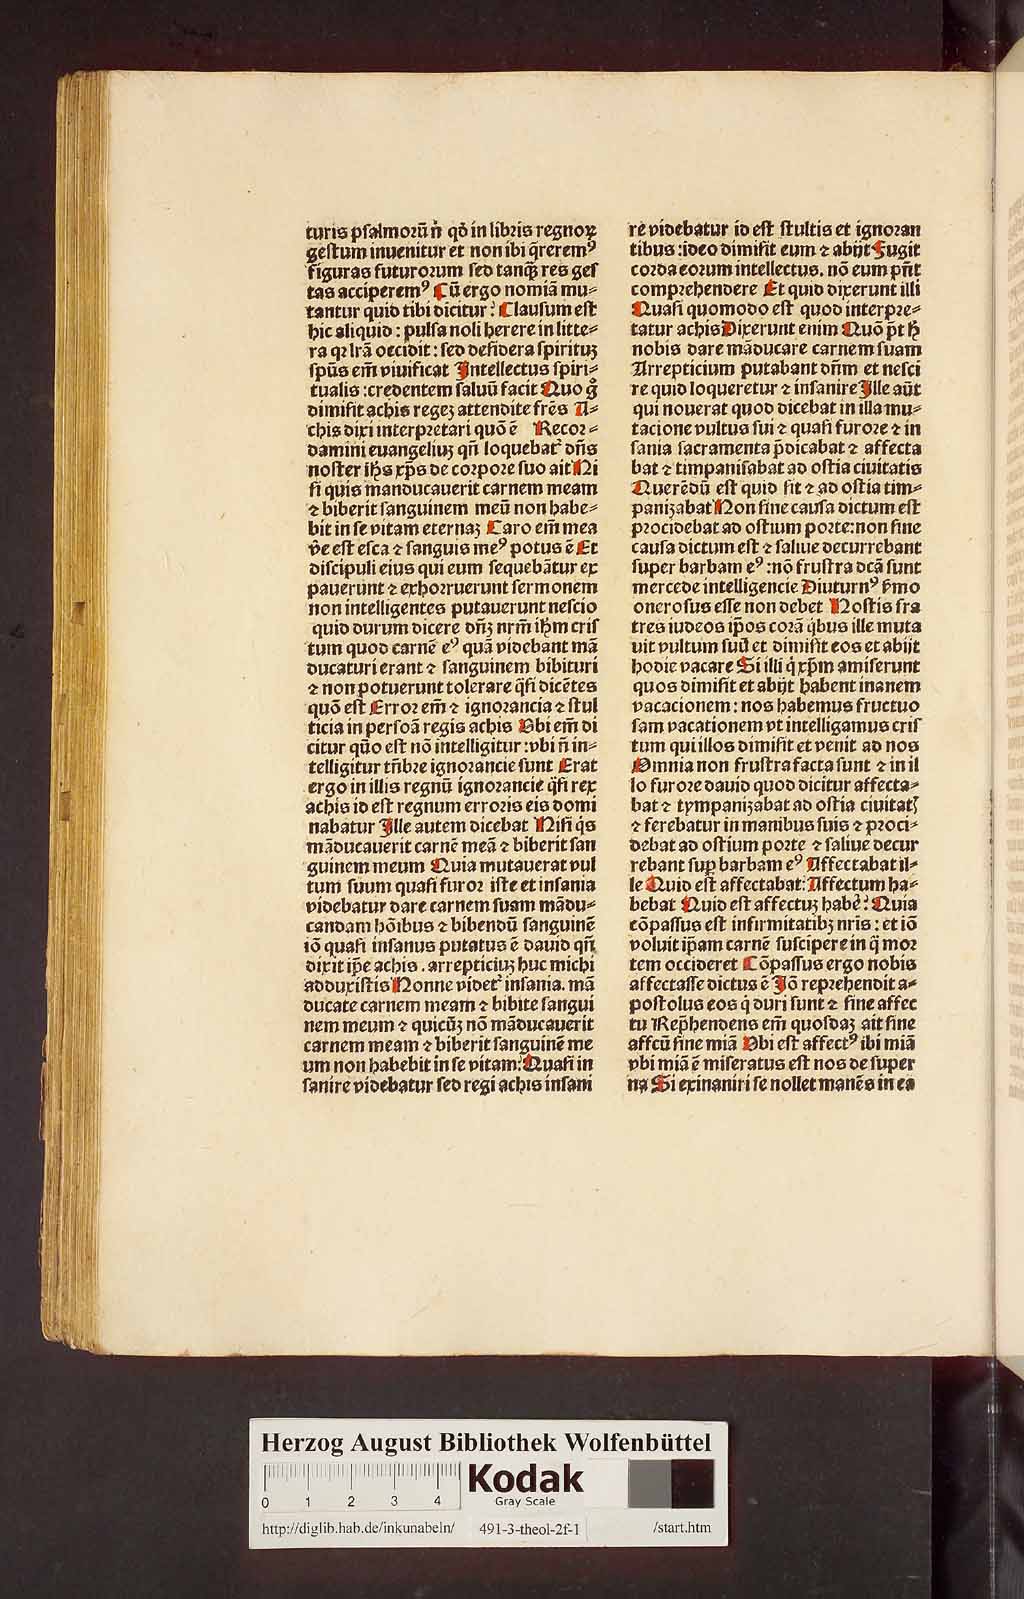 turis psalmorū n̄ qđ in libris regnoꝝ
gestum inuenitur et non ibi q̄reremꝰ
figuras futurorum sed tanqȝ res ges
tas acciperemꝰ Cū ergo nomiā mu⸗
tantur quid tibi dicitur? Clausum est
hic aliquid : pulsa noli herere in litte⸗
ra qꝛ lr̄a occidit : sed desidera spirituȝ
sp̄us em̄ viuificat Intellectus spiri⸗
tualis : credentem saluū facit Quo g̊
dimisit achis regeȝ attendite fr̄es A⸗
chis dixi interpretari quō ē Recor⸗
damini euangeliuȝ qn̄ loquebat᷑ dn̄s
noster ih̄s xp̄s de corpore suo ait Ni
si quis manducauerit carnem meam
⁊ biberit sanguinem meū non habe⸗
bit in se vitam eternaȝ Caro em̄ mea
v̄e est esca ⁊ sanguis meꝰ potus ē Et
discipuli eius qui eum sequebātur ex
pauerunt ⁊ exhorruerunt sermonem
non intelligentes putauerunt nescio
quid durum dicere dn̄ȝ nrm̄ ih̄m cris
tum quod carnē eꝰ quā videbant mā
ducaturi erant ⁊ sanguinem bibituri
⁊ non potuerunt tolerare q̄si dicētes
quō est Error em̄ ⁊ ignorancia ⁊ stul
ticia in persoā regis achis Vbi em̄ di
citur quō est nō intelligitur : vbi n̄ in⸗
telligitur tn̄bre ignorancie sunt Erat
ergo in illis regnū ignorancie q̄si rex
achis id est regnum erroris eis domi
nabatur Ille autem dicebat Nisi q̇s
māducauerit carnē meā ⁊ biberit san
guinem meum Quia mutauerat vul
tum suum quasi furor iste et insania
videbatur dare carnem suam mādu⸗
candam hōibus ⁊ bibendū sanguinē
iō quasi insanus putatus ē dauid qn̄
dixit ip̄e achis . arrepticiuȝ huc michi
adduxistis Nonne videt᷑ insania. mā
ducate carnem meam ⁊ bibite sangui
nem meum ⁊ quicūȝ nō māducauerit
carnem meam ⁊ biberit sanguinē me
um non habebit in se vitam? Quasi in
sanire videbatur sed regi achis insani
re videbatur id est stultis et ignoran
tibus : ideo dimisit eum ⁊ abijt Fugit
corda eorum intellectus. nō eum pn̄t
comprehendere Et quid dixerunt illi
Quasi quomodo est quod interpre⸗
tatur achis Dixerunt enim Quō p̄t ħ
nobis dare māducare carnem suam
Arrepticium putabant dn̄m et nesci
re quid loqueretur ⁊ insanire Ille aūt
qui nouerat quod dicebat in illa mu⸗
tacione vultus sui ⁊ quasi furore ⁊ in
sania sacramenta p̄dicabat ⁊ affecta
bat ⁊ timpanisabat ad ostia ciuitatis
Querēdū est quid sit ⁊ ad ostia tim⸗
panizabat Non sine causa dictum est
procidebat ad ostium porte: non sine
causa dictum est ⁊ saliue decurrebant
super barbam eꝰ : nō frustra dcā sunt
mercede intelligencie Diuturnꝰ s̄mo
onerosus esse non debet Nostis fra
tres iudeos ip̄os corā q̇bus ille muta
uit vultum suū et dimisit eos et abijt
hodie vacare Si illi q̇ xp̄m amiserunt
quos dimisit et abijt habent inanem
vacacionem : nos habemus fructuo
sam vacationem vt intelligamus cris
tum qui illos dimisit et venit ad nos
Omnia non frustra facta sunt ⁊ in il
lo furore dauid quod dicitur affecta⸗
bat ⁊ tympanizabat ad ostia ciuitatꝭ
⁊ ferebatur in manibus suis ⁊ proci⸗
debat ad ostium porte ⁊ saliue decur
rebant suꝑ barbam eꝰ Affectabat il⸗
le Quid est affectabat: Affectum ha⸗
bebat Quid est affectuȝ habē? Quia
cōpassus est infirmitatibȝ nr̄is : et iō
voluit ip̄am carnē suscipere in q̄ mor
tem occideret Cōpassus ergo nobis
affectasse dictus ē Iō reprehendit a⸗
postolus eos q̇ duri sunt ⁊ sine affec
tu Rep̄hendens em̄ quosdaȝ ait sine
affcū sine miā Vbi est affectꝰ ibi miā
vbi miā ē miseratus est nos de super
na Si exinaniri se nollet manēs in ea
Herzog August Bibliothek Wolfenbüttel
0 1 2 3 4
Kodak
Gray Scale
http://diglib.hab.de/inkunabeln/ 491-3-theol-2f-1 /start.htm